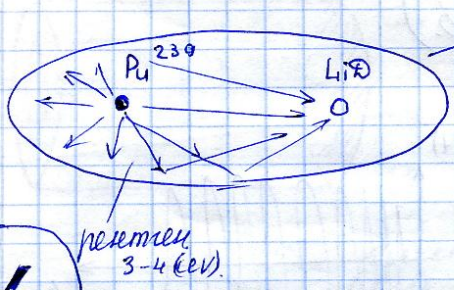 Pu²³⁹ LiD
рентген
3-4 кеV).